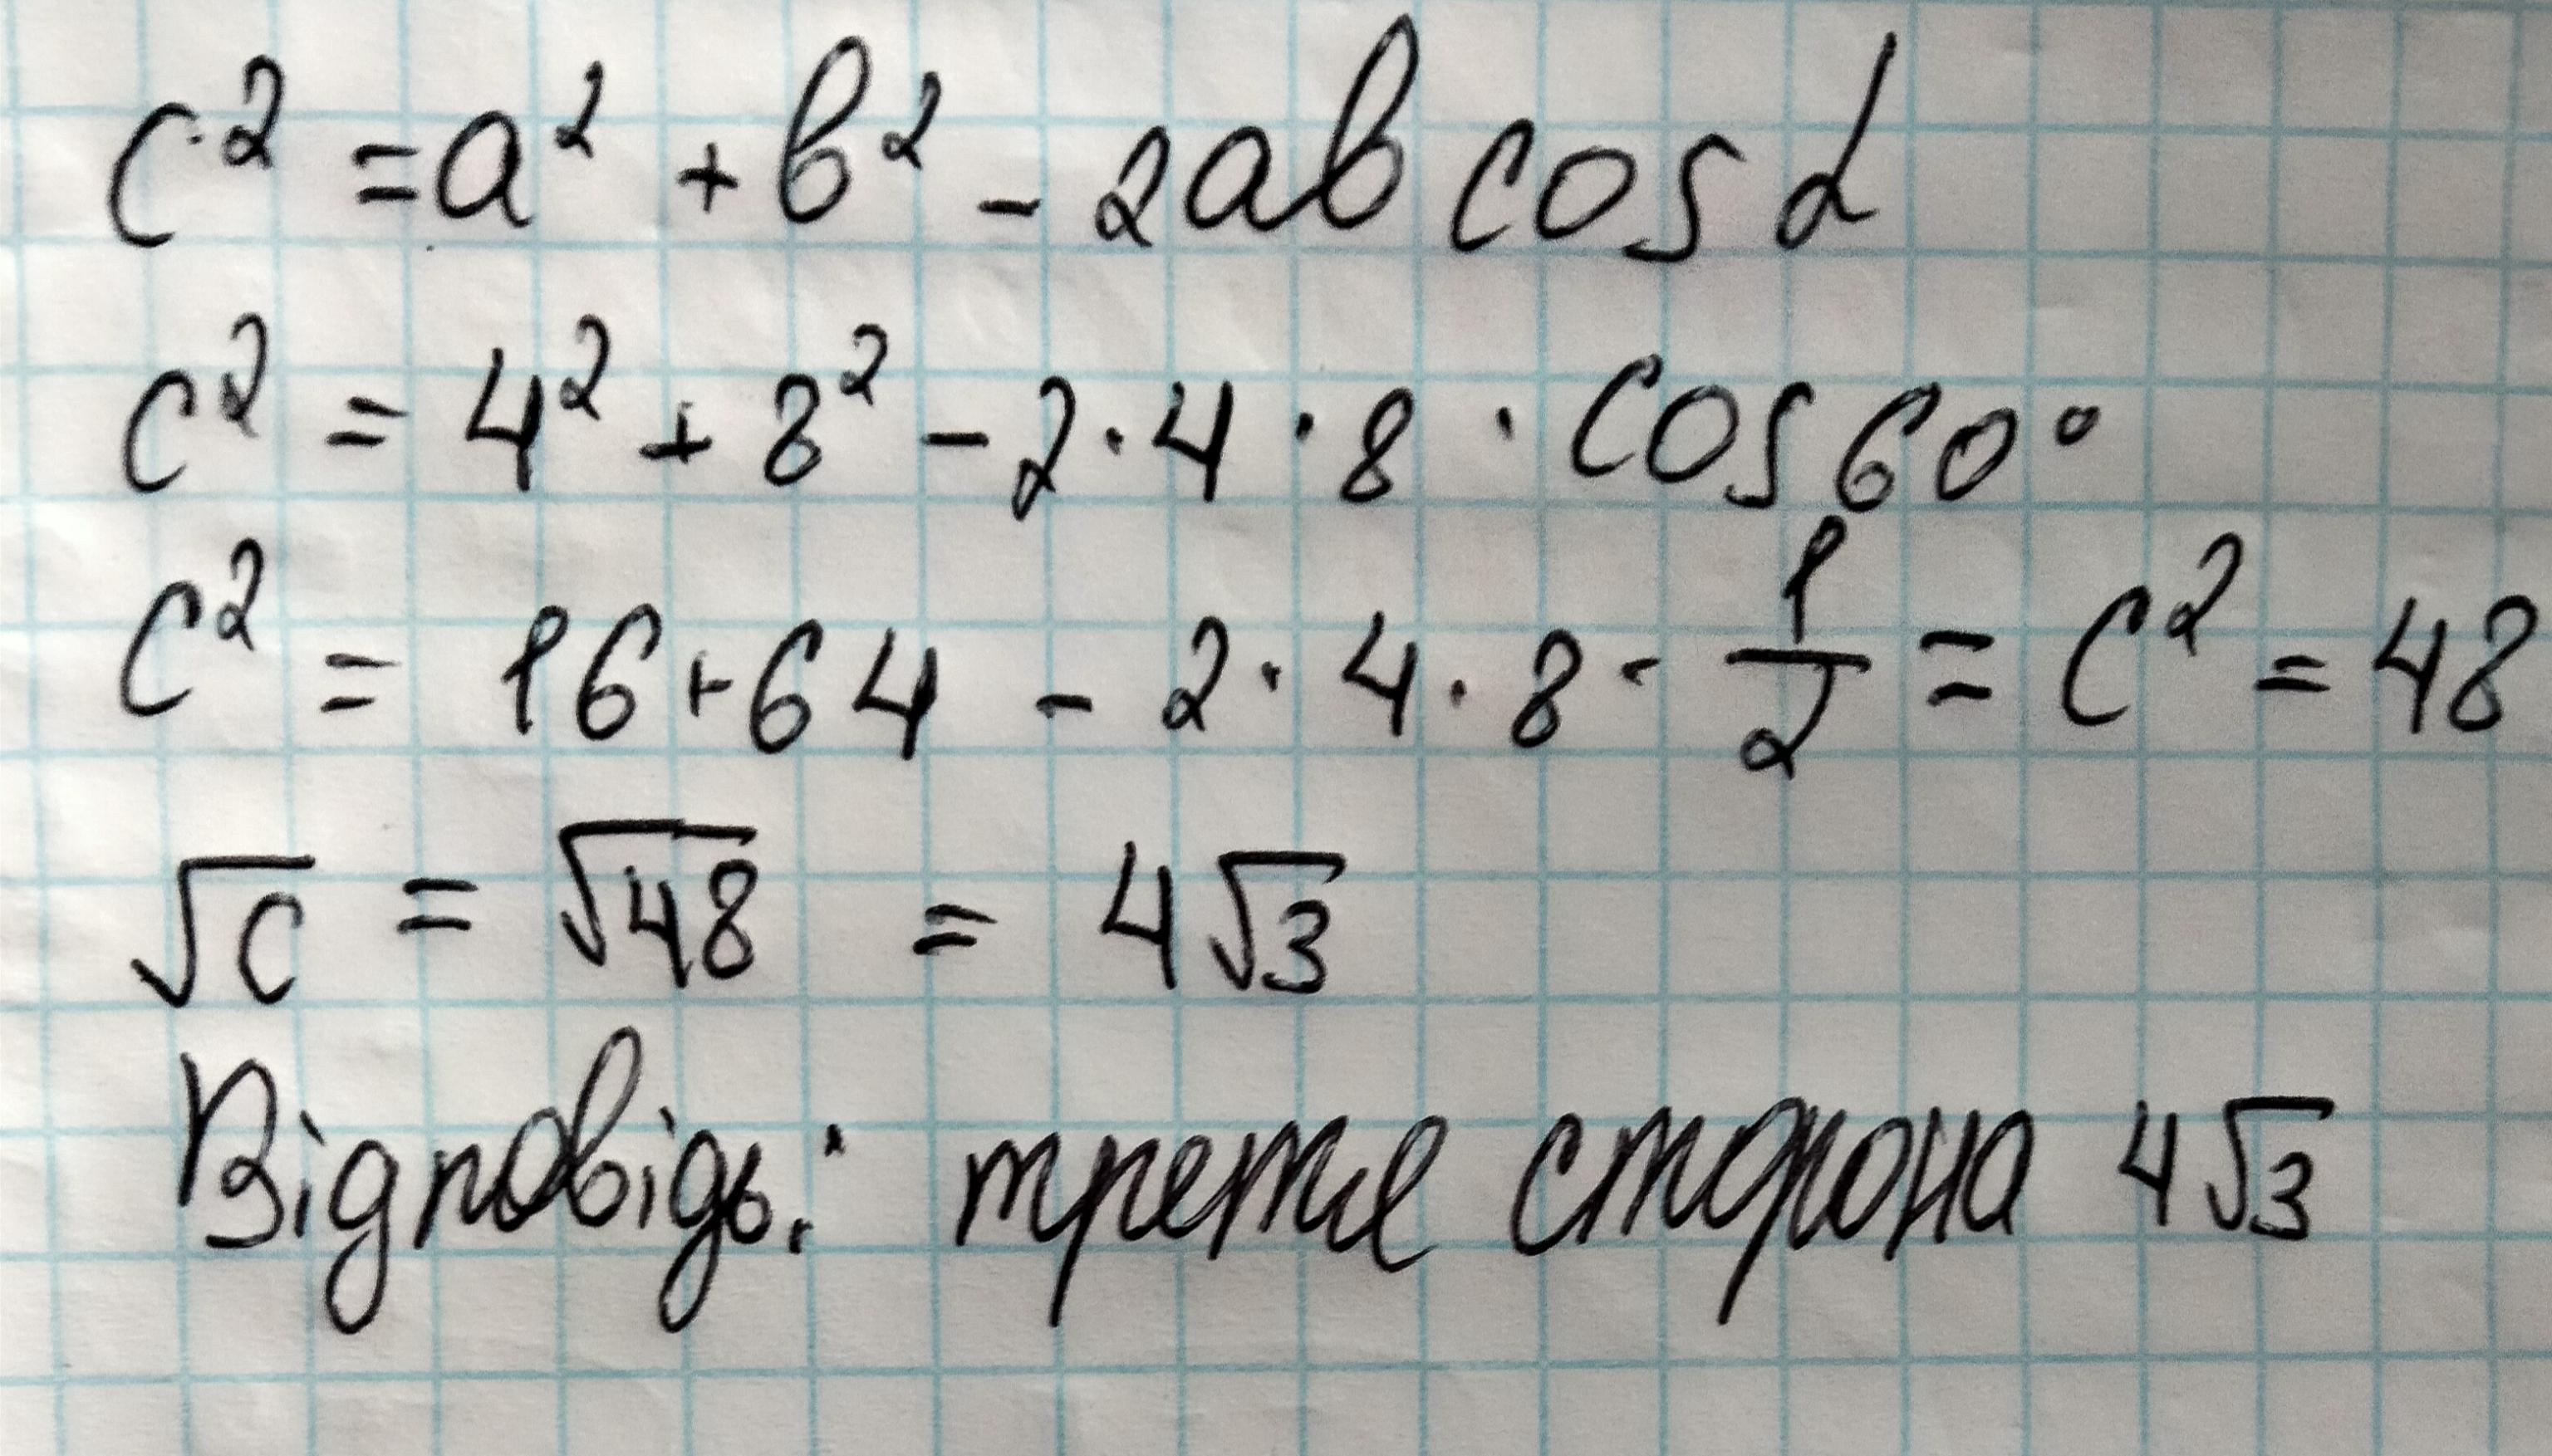 c² = a² + b² - 2ab cos α
c² = 4² + 8² - 2 · 4 · 8 · cos 60°
c² = 16 + 64 - 2 · 4 · 8 · 1/2 = c² = 48
√c = √48 = 4√3
Відповідь: третє сторона 4√3